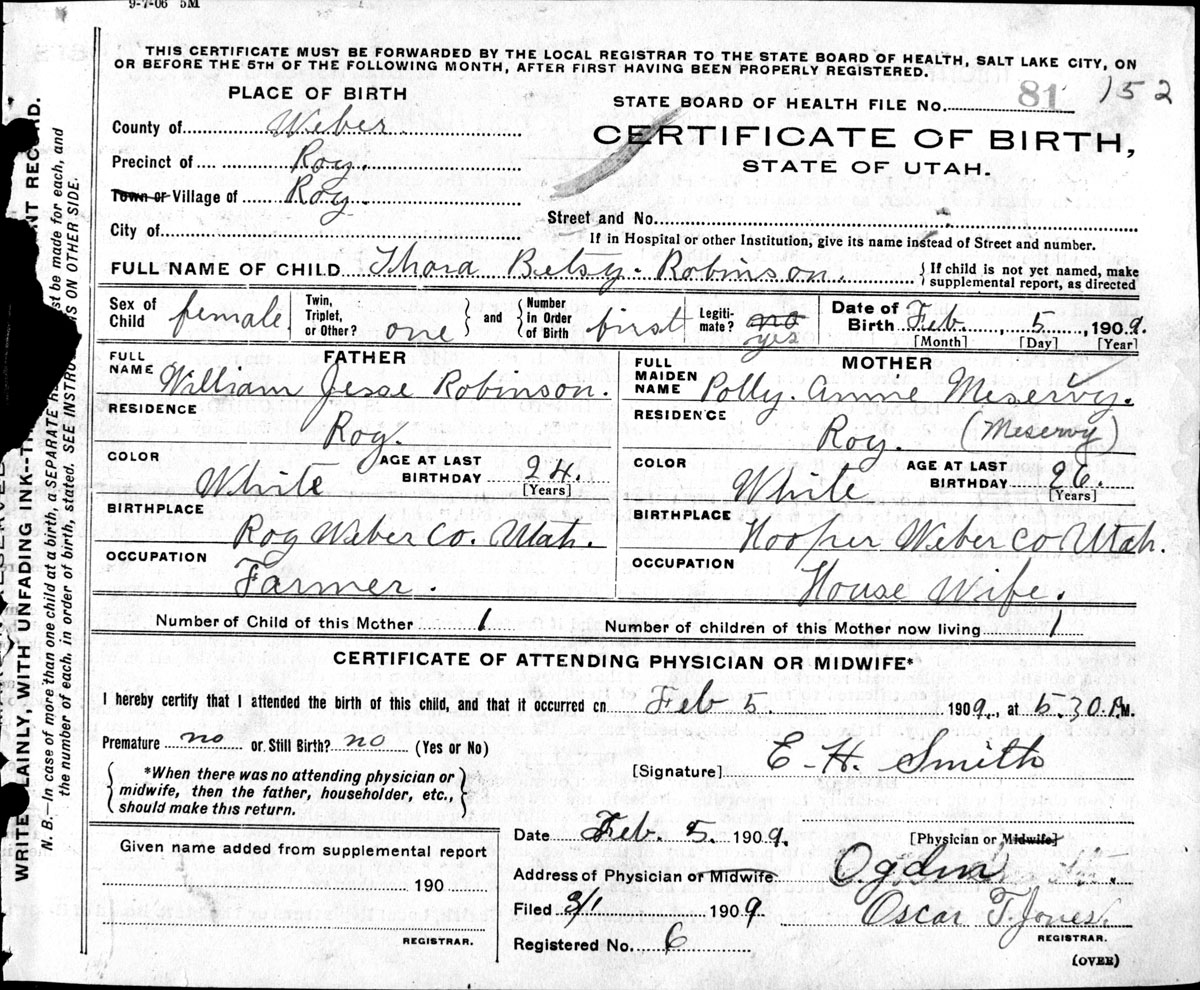 9-7-06 5M
THIS CERTIFICATE MUST BE FORWARDED BY THE LOCAL REGISTRAR TO THE STATE BOARD OF HEALTH, SALT LAKE CITY, ON
OR BEFORE THE 5TH OF THE FOLLOWING MONTH, AFTER FIRST HAVING BEEN PROPERLY REGISTERED.
PLACE OF BIRTH
STATE BOARD OF HEALTH FILE No. 81 152
County of Weber
CERTIFICATE OF BIRTH,
Precinct of Roy.
STATE OF UTAH.
Town or Village of Roy.
Street and No.
City of
If in Hospital or other Institution, give its name instead of Street and number.
FULL NAME OF CHILD Thora Betsy Robinson. { If child is not yet named, make
supplemental report, as directed
Sex of Child female Twin, Triplet, or Other? one } and { Number in Order of Birth first Legiti-mate? no yes Date of Birth Feb, 5, 1909.
[Month] [Day] [Year]
FATHER
FULL NAME William Jesse Robinson.
RESIDENCE Roy.
COLOR White AGE AT LAST BIRTHDAY 24.
[Years]
BIRTHPLACE Roy Weber Co. Utah.
OCCUPATION Farmer.
MOTHER
FULL MAIDEN NAME Polly. Annie Meservy.
RESIDENCE Roy. (Meservy)
COLOR White AGE AT LAST BIRTHDAY 26.
[Years]
BIRTHPLACE Hooper Weber Co Utah.
OCCUPATION House Wife.
Number of Child of this Mother 1 Number of children of this Mother now living 1
CERTIFICATE OF ATTENDING PHYSICIAN OR MIDWIFE*
I hereby certify that I attended the birth of this child, and that it occurred on Feb 5. 1909., at 5.30 P.M.
Premature no or Still Birth? no (Yes or No)
[Signature] E. H. Smith
{ *When there was no attending physician or
midwife, then the father, householder, etc.,
should make this return. }
Date Feb. 5. 1909. [Physician or Midwife]
Given name added from supplemental report
Address of Physician or Midwife Ogden
190
Filed 3/1 1909 Oscar T. Jones.
REGISTRAR.
REGISTRAR.
Registered No. 6
(OVER)
WRITE PLAINLY, WITH UNFADING INK--
NT RECORD.
N. B.—In case of more than one child at a birth, a SEPARATE
st be made for each, and
the number of each, in order of birth, stated. SEE
S ON OTHER SIDE.